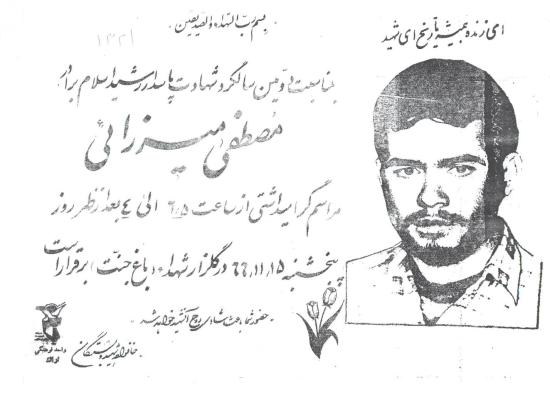 بسم رب الشهداء والصدیقین
ای زنده همیشه تاریخ ای شهید
۱۳۲۱
بمناسبت دومین سالگرد شهادت پاسدار رشید اسلام برادر
مصطفی میرزائی
مراسم گرامیداشتی از ساعت ۲/۵ الی ٤ بعدازظهر روز
پنجشنبه ۶۲،۱۱،۱۵ در گلزار شهداء (باغ جنت) برقرار است
حضور شما باعث شادی روح آن شهید خواهد شد
خانواده شهید و بستگان
واحد فرهنگی